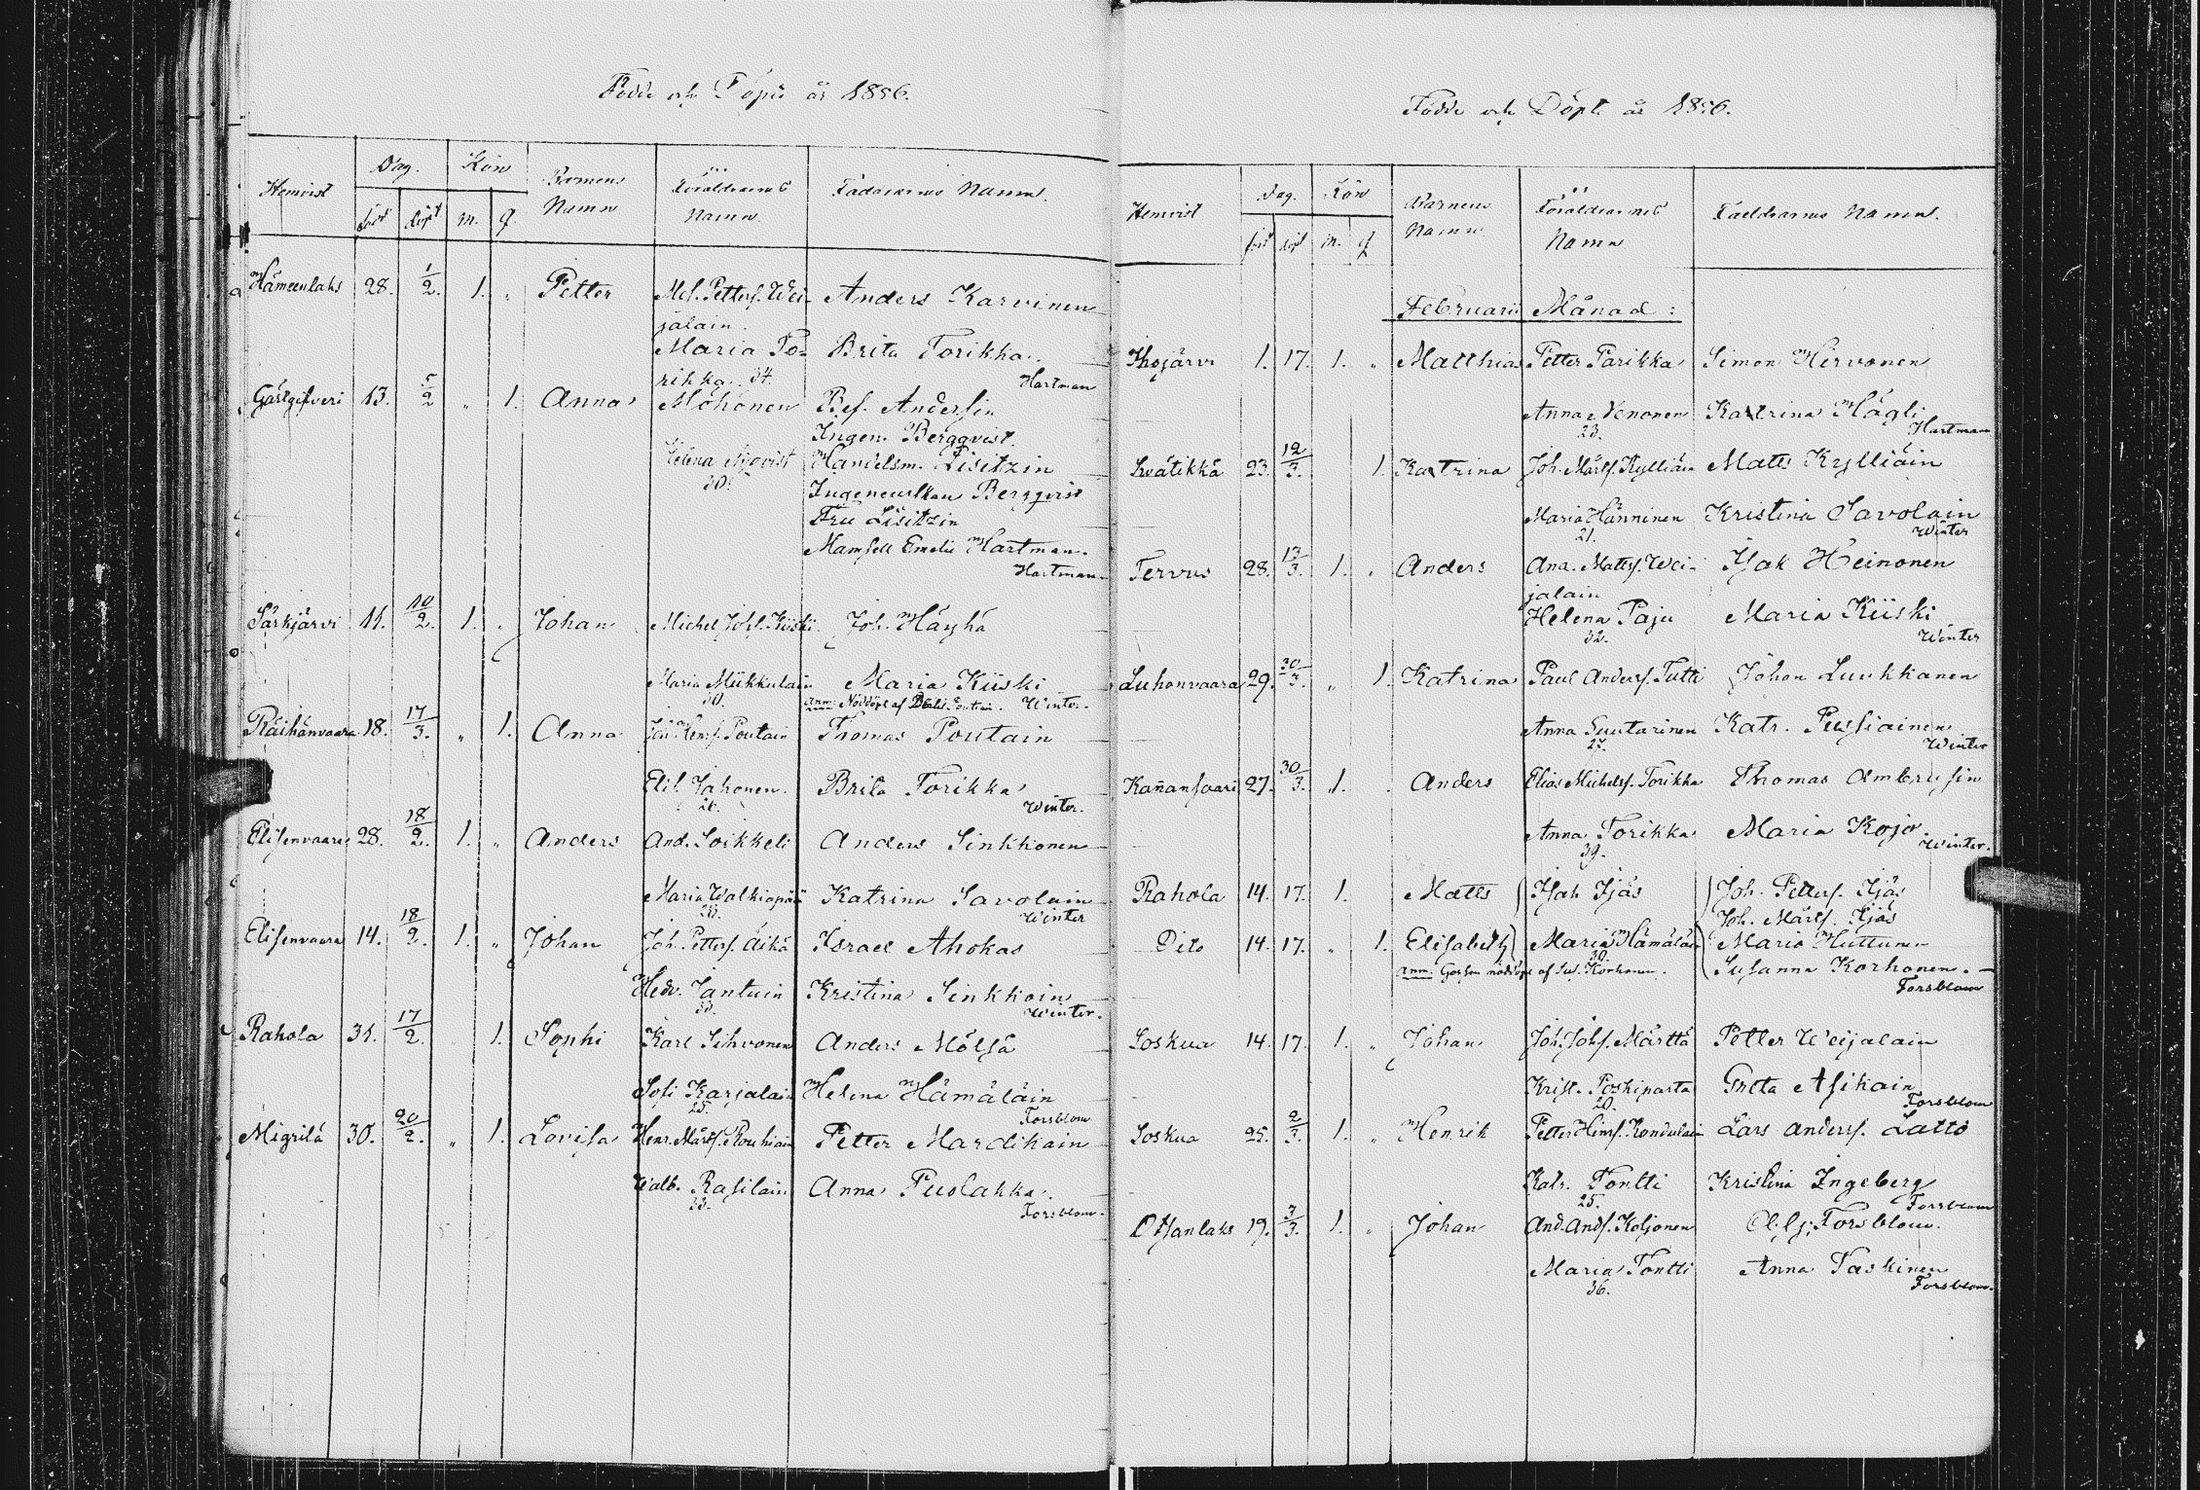 Födde och Döpte år 1856.
Hemvist Dag. Kön Barnens Namn Föräldrarnes Namn Faddrarnes Namn.
född döpt m. q.
Hämeenlaks 28. 1/2. 1. „ Petter Mel. Petters. Wei- Anders Karvinen
jälain.
Maria To- Brita Torikka.
rikka. 34. Hartman
Gästgifveri 13. 5/2 „ 1. Anna Möhönen Bef. Andersin
Ingen. Bergqvist.
Helena 30. Handelsm. Lisitzin
Ingeneurskan Bergqvist
Fru Lisitzin
Mamsell Emelie Hartman.
Hartman.
Särkjärvi 11. 10/2. 1. „ Johan Michel Johs. Kiiski Joh. Häyhä
Maria Mikkulain Maria Kiiski
30. anm: Nöddöpt af Poutain. Winter.
Räihänvaara 18. 17/3. „ 1. Anna Henrs. Poutain Thomas Poutain
Elis. Jahonen. Brita Torikka
26. Winter.
Elisenvaara 28. 18/2. 1. „ Anders And. Soikkeli Anders Sinkkonen
Maria Walkiapää Katrina Savolain
28. Winter
Elisenvaara 14. 18/2. 1. „ Johan Joh. Petters. Äikä Israel Ahokas
Hedv. Jantuin Kristina Sinkkoin
33. Winter.
Rahola 31. 17/2. 1. Sophi Karl Sihvonen Anders Mölsä
Sofi Karjalain Helena Hämäläin
25. Forsblom
Migrilä 30. 20/2. „ 1. Lovisa Henr. Mårts. Rouhiain Petter Mardikain
Walb. Rasilain Anna Puolakka.
33. Forsblom.
Födde och Döpte år 1856.
Hemvist Dag. Kön Barnens Namn Föräldrarnes Namn Faddrarnes Namn.
född döpt m. q.
Februarii Månad:
Ihojärvi 1. 17. 1. „ Matthias Petter Parikka Simon Hirvonen
Anna Nenonen Katrina Hägli
23. Hartman
Lvätikkä 23. 12/3. 1. Katrina Joh. Mårts. Kylliäin Matts Kylliäin
Maria Hänninen Kristina Savolain
21. Winter
Tervus 28. 13/3. 1. „ Anders And. Matts. Wei- Isak Heinonen
jalain
Helena Paju Maria Kiiski
32. Winter
Luhonvaara 29. 30/3. „ 1. Katrina Paul Anders. Tutti Johan Luukkanen
Anna Suutarinen Katr. Pussiainen
27. Winter
Kañansaari 27. 30/3. 1. Anders Elias Michels. Torikka Thomas Ambrusin
Anna Torikka Maria Kojo
39. Winter.
Rahola 14. 17. 1. Matts Isak Ijäs Joh. Petters. Ijäs
Joh. Mårts. Ijäs
Dito 14. 17. „ 1. Elisabeth Maria Hämäläin Maria Huttunen
30.
anm. Gossen nöddöpt af Sus. Korhonen. Susanna Korhonen.
Forsblom
Soskua 14. 17. 1. „ Johan Joh. Johs. Märttä Petter Weijalain
Krist. Poskiparta Greta Asikain
20. Forsblom
Soskua 25. 2/3. 1. „ Henrik Petter Hinrs. Kondulain Lars Anders. Lattö
Katr. Tontti Kristina Ingeberg
25. Forsblom
Otsanlaks 19. 3/3. 1. „ Johan And. Ands. Koljonen Forsblom.
Maria Tontti Anna Taskinen
36. Forsblom.